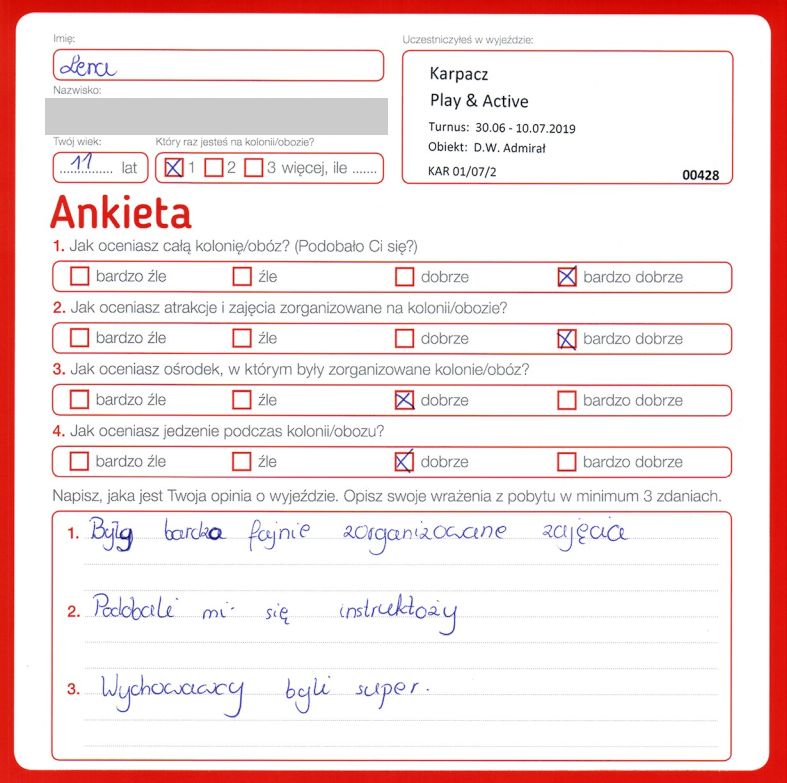 Imię:
Lena
Nazwisko:
Twój wiek:
11 lat
Który raz jesteś na kolonii/obozie?
1 2 3 więcej, ile .......
Uczestniczyłeś w wyjeździe:
Karpacz
Play & Active
Turnus: 30.06 - 10.07.2019
Obiekt: D.W. Admirał
KAR 01/07/2 00428
Ankieta
1. Jak oceniasz całą kolonię/obóz? (Podobało Ci się?)
bardzo źle źle dobrze bardzo dobrze
2. Jak oceniasz atrakcje i zajęcia zorganizowane na kolonii/obozie?
bardzo źle źle dobrze bardzo dobrze
3. Jak oceniasz ośrodek, w którym były zorganizowane kolonie/obóz?
bardzo źle źle dobrze bardzo dobrze
4. Jak oceniasz jedzenie podczas kolonii/obozu?
bardzo źle źle dobrze bardzo dobrze
Napisz, jaka jest Twoja opinia o wyjeździe. Opisz swoje wrażenia z pobytu w minimum 3 zdaniach.
1. Były bardzo fajnie zorganizowane zajęcia
2. Podobali mi się instruktoży
3. Wychowawcy byli super.